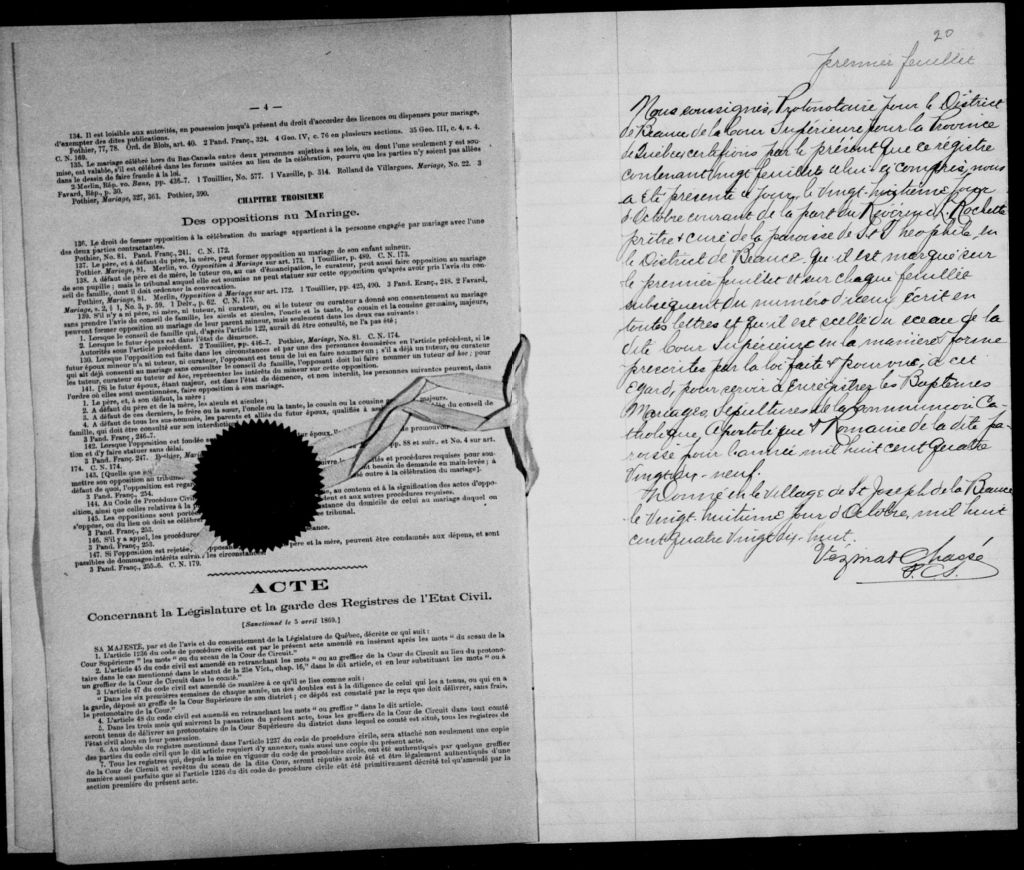 — 4 —
134. Il est loisible aux autorités, en possession jusqu'à présent du droit d'accorder des licences ou dispenses pour mariage,
d'exempter des dites publications.
Pothier, 77, 78. Ord. de Blois, art. 40. 2 Pand. Franç., 324. 4 Geo. IV, c. 76 en plusieurs sections. 35 Geo. III, c. 4, s. 4.
C. N. 169.
135. Le mariage célébré hors du Bas-Canada entre deux personnes sujettes à ses lois, ou dont l'une seulement y est sou-
mise, est valable, s'il est célébré dans les formes usitées au lieu de la célébration, pourvu que les parties n'y soient pas allées
dans le dessein de faire fraude à la loi.
2 Merlin, Rép. vo. Bans, pp. 436-7. 1 Touillier, No. 577. 1 Vazeille, p. 314. Rolland de Villargues, Mariage, No. 22. 3
Favard, Rép., p. 30.
Pothier, Mariage, 327, 363. Pothier, 390.
CHAPITRE TROISIEME
Des oppositions au Mariage.
136. Le droit de former opposition à la célébration du mariage appartient à la personne engagée par mariage avec l'une
des deux parties contractantes.
Pothier, No. 81. Pand. Franç., 241. C. N. 172.
137. Le père, et à défaut du père, la mère, peut former opposition au mariage de son enfant mineur.
Pothier. Mariage, 81. Merlin, vo. Opposition à Mariage sur art. 173. 1 Touillier, p. 489. C. N. 173.
138. A défaut de père et de mère, le tuteur ou, au cas d'émancipation, le curateur, peut aussi faire opposition au mariage
de son pupille ; mais le tribunal auquel elle est soumise ne peut statuer sur cette opposition qu'après avoir pris l'avis du con-
seil de famille, dont il doit ordonner la convocation.
Pothier, Mariage, 81. Merlin, Opposition à Mariage sur art. 172. 1 Touillier, pp. 425, 490. 3 Pand. Franç., 248. 2 Favard,
Mariage, s. 2, § 1, No. 3, p. 59. 1 Delv., p. 62. C. N. 175.
139. S'il n'y a ni père, ni mère, ni tuteur, ni curateur, ou si le tuteur ou curateur a donné son consentement au mariage
sans prendre l'avis du conseil de famille, les aïeuls et aïeules, l'oncle et la tante, le cousin et la cousine germains, majeurs,
peuvent former opposition au mariage de leur parent mineur, mais seulement dans les deux cas suivants :
1. Lorsque le conseil de famille qui, d'après l'article 122, aurait dû être consulté, ne l'a pas été ;
2. Lorsque le futur époux est dans l'état de démence.
Autorités sous l'article précédent. 2 Touillier, pp. 446-7. Pothier, Mariage, No. 81. C. N. 174.
130. Lorsque l'opposition est faite dans les circonstances et par une des personnes énumérées en l'article précédent, si le
futur époux mineur n'a ni tuteur, ni curateur, l'opposant est tenu de lui en faire nommer un ; s'il a déjà un tuteur, ou curateur
qui ait déjà consenti au mariage sans consulter le conseil de famille, l'opposant doit lui faire nommer un tuteur ad hoc ; pour
les tuteur, curateur ou tuteur ad hoc, représenter les intérêts du mineur sur cette opposition.
141. [Si le futur époux, étant majeur, est dans l'état de démence, et non interdit, les personnes suivantes peuvent, dans
l'ordre où elles sont mentionnées, faire opposition à son mariage.
1. Le père, et, à son défaut, la mère ;
2. A défaut du père et de la mère, les aïeuls et aïeules ;
3. A défaut de ces derniers, le frère ou la sœur, l'oncle ou la tante, le cousin ou la cousine majeurs.
4. A défaut de tous les sus-nommés, les parents et alliés du futur époux, qualifiés à conseil de
famille, qui doit être consulté sur son interdiction
3 Pand. Franç., 246-7.
142. Lorsque l'opposition est fondée époux, promouvoir
tion et d'y faire statuer sans délai.
3 Pand. Franç. 247. Pothier, pp. 88 et suiv. et No. 4 sur art.
174. C. N. 174.
143. [Quelle que et procédures requises pour sou-
mettre son opposition au tribunal besoin de demande en main-levée ; à
défaut de quoi, l'opposition est outre à la célébration du mariage].
3 Pand. Franç., 254.
144. Au Code de Procédure Civile au contenu et à la signification des actes d'oppo-
sition, ainsi que celles relatives à la et aux autres procédures requises.
145. Les oppositions sont du domicile de celui au mariage duquel on
s'oppose, ou du lieu où doit se célébrer tribunal.
3 Pand. Franç., 253.
146. S'il y a appel, les procédures
3 Pand. Franç., 253.
147. Si l'opposition est rejetée, père et la mère, peuvent être condamnés aux dépens, et sont
passibles de dommages-intérêts suivant les circonstances.
3 Pand. Franç., 255-6. C. N. 179.
ACTE
Concernant la Législature et la garde des Registres de l'Etat Civil.
[Sanctionné le 5 avril 1869.]
SA MAJESTE, par et de l'avis et du consentement de la Législature de Québec, décrète ce qui suit :
1. L'article 1236 du code de procédure civile est par le présent acte amendé en insérant après les mots " du sceau de la
Cour Supérieure " les mots " ou du sceau de la Cour de Circuit."
2. L'article 45 du code civil est amendé en retranchant les mots " ou au greffier de la Cour de Circuit au lieu du protono-
taire dans le cas mentionné dans le statut de la 25e Vict., chap. 16," dans le dit article, et en leur substituant les mots " ou à
un greffier de la Cour de Circuit dans le comté."
3 L'article 47 du code civil est amendé de manière à ce qu'il se lise comme suit :
" Dans les six premières semaines de chaque année, un des doubles est à la diligence de celui qui les a tenus, ou qui en a
la garde, déposé au greffe de la Cour Supérieure de son district ; ce dépôt est constaté par le reçu que doit délivrer, sans frais,
le protonotaire de la Cour."
4. L'article 48 du code civil est amendé en retranchant les mots " ou greffier " dans le dit article.
5. Dans les trois mois qui suivront la passation du présent acte, tous les greffiers de la Cour de Circuit dans tout comté
seront tenus de délivrer au protonotaire de la Cour Supérieure du district dans lequel ce comté est situé, tous les registres de
l'état civil alors en leur possession.
6. Au double du registre mentionné dans l'article 1237 du code de procédure civile, sera attaché non seulement une copie
des parties du code civil que le dit article requiert d'y annexer, mais aussi une copie du présent acte.
7. Tous les registres qui, depuis la mise en vigueur du code de procédure civile, ont été authentiqués par quelque greffier
de la Cour de Circuit et revêtus du sceau de la dite Cour, seront réputés avoir été et être légalement authentiqués d'une
manière aussi parfaite que si l'article 1236 du dit code de procédure civile eût été primitivement décrété tel qu'amendé par la
section première du présent acte.
20
premier feuillet
Nous soussignés, Protonotaire pour le District
de Beauce de la Cour Supérieure pour la Province
de Québec certifions par le présent que ce régistre
contenant vingt feuillets celui-ci compris, nous
a été présenté ce jour, le vingt-huitième jour
d'Octobre courant de la part du Révérend L. Rochette
prêtre & curé de la paroisse de St Théophile, en
le District de Beauce. qu'il est marqué sur
le premier feuillet et sur chaque feuillet
subséquent du numéro d'iceux, écrit en
toutes lettres et qu'il est scellé du sceau de la
dite Cour Supérieure en la manière & forme
prescrites par la loi faite & pourvue, à cet
égard, pour servir à Enregistrer les Baptêmes
Mariages, Sépultures de la Communion Ca-
tholique, Apostolique & Romaine de la dite pa-
roisse pour l'année mil huit cent quatre
vingt-dix-neuf.
Donné en le village de St Joseph de la Beauce
le vingt-huitième jour d'Octobre, mil huit
cent quatre vingt-dix-huit.
Vézina & Chassé
P. C. S.